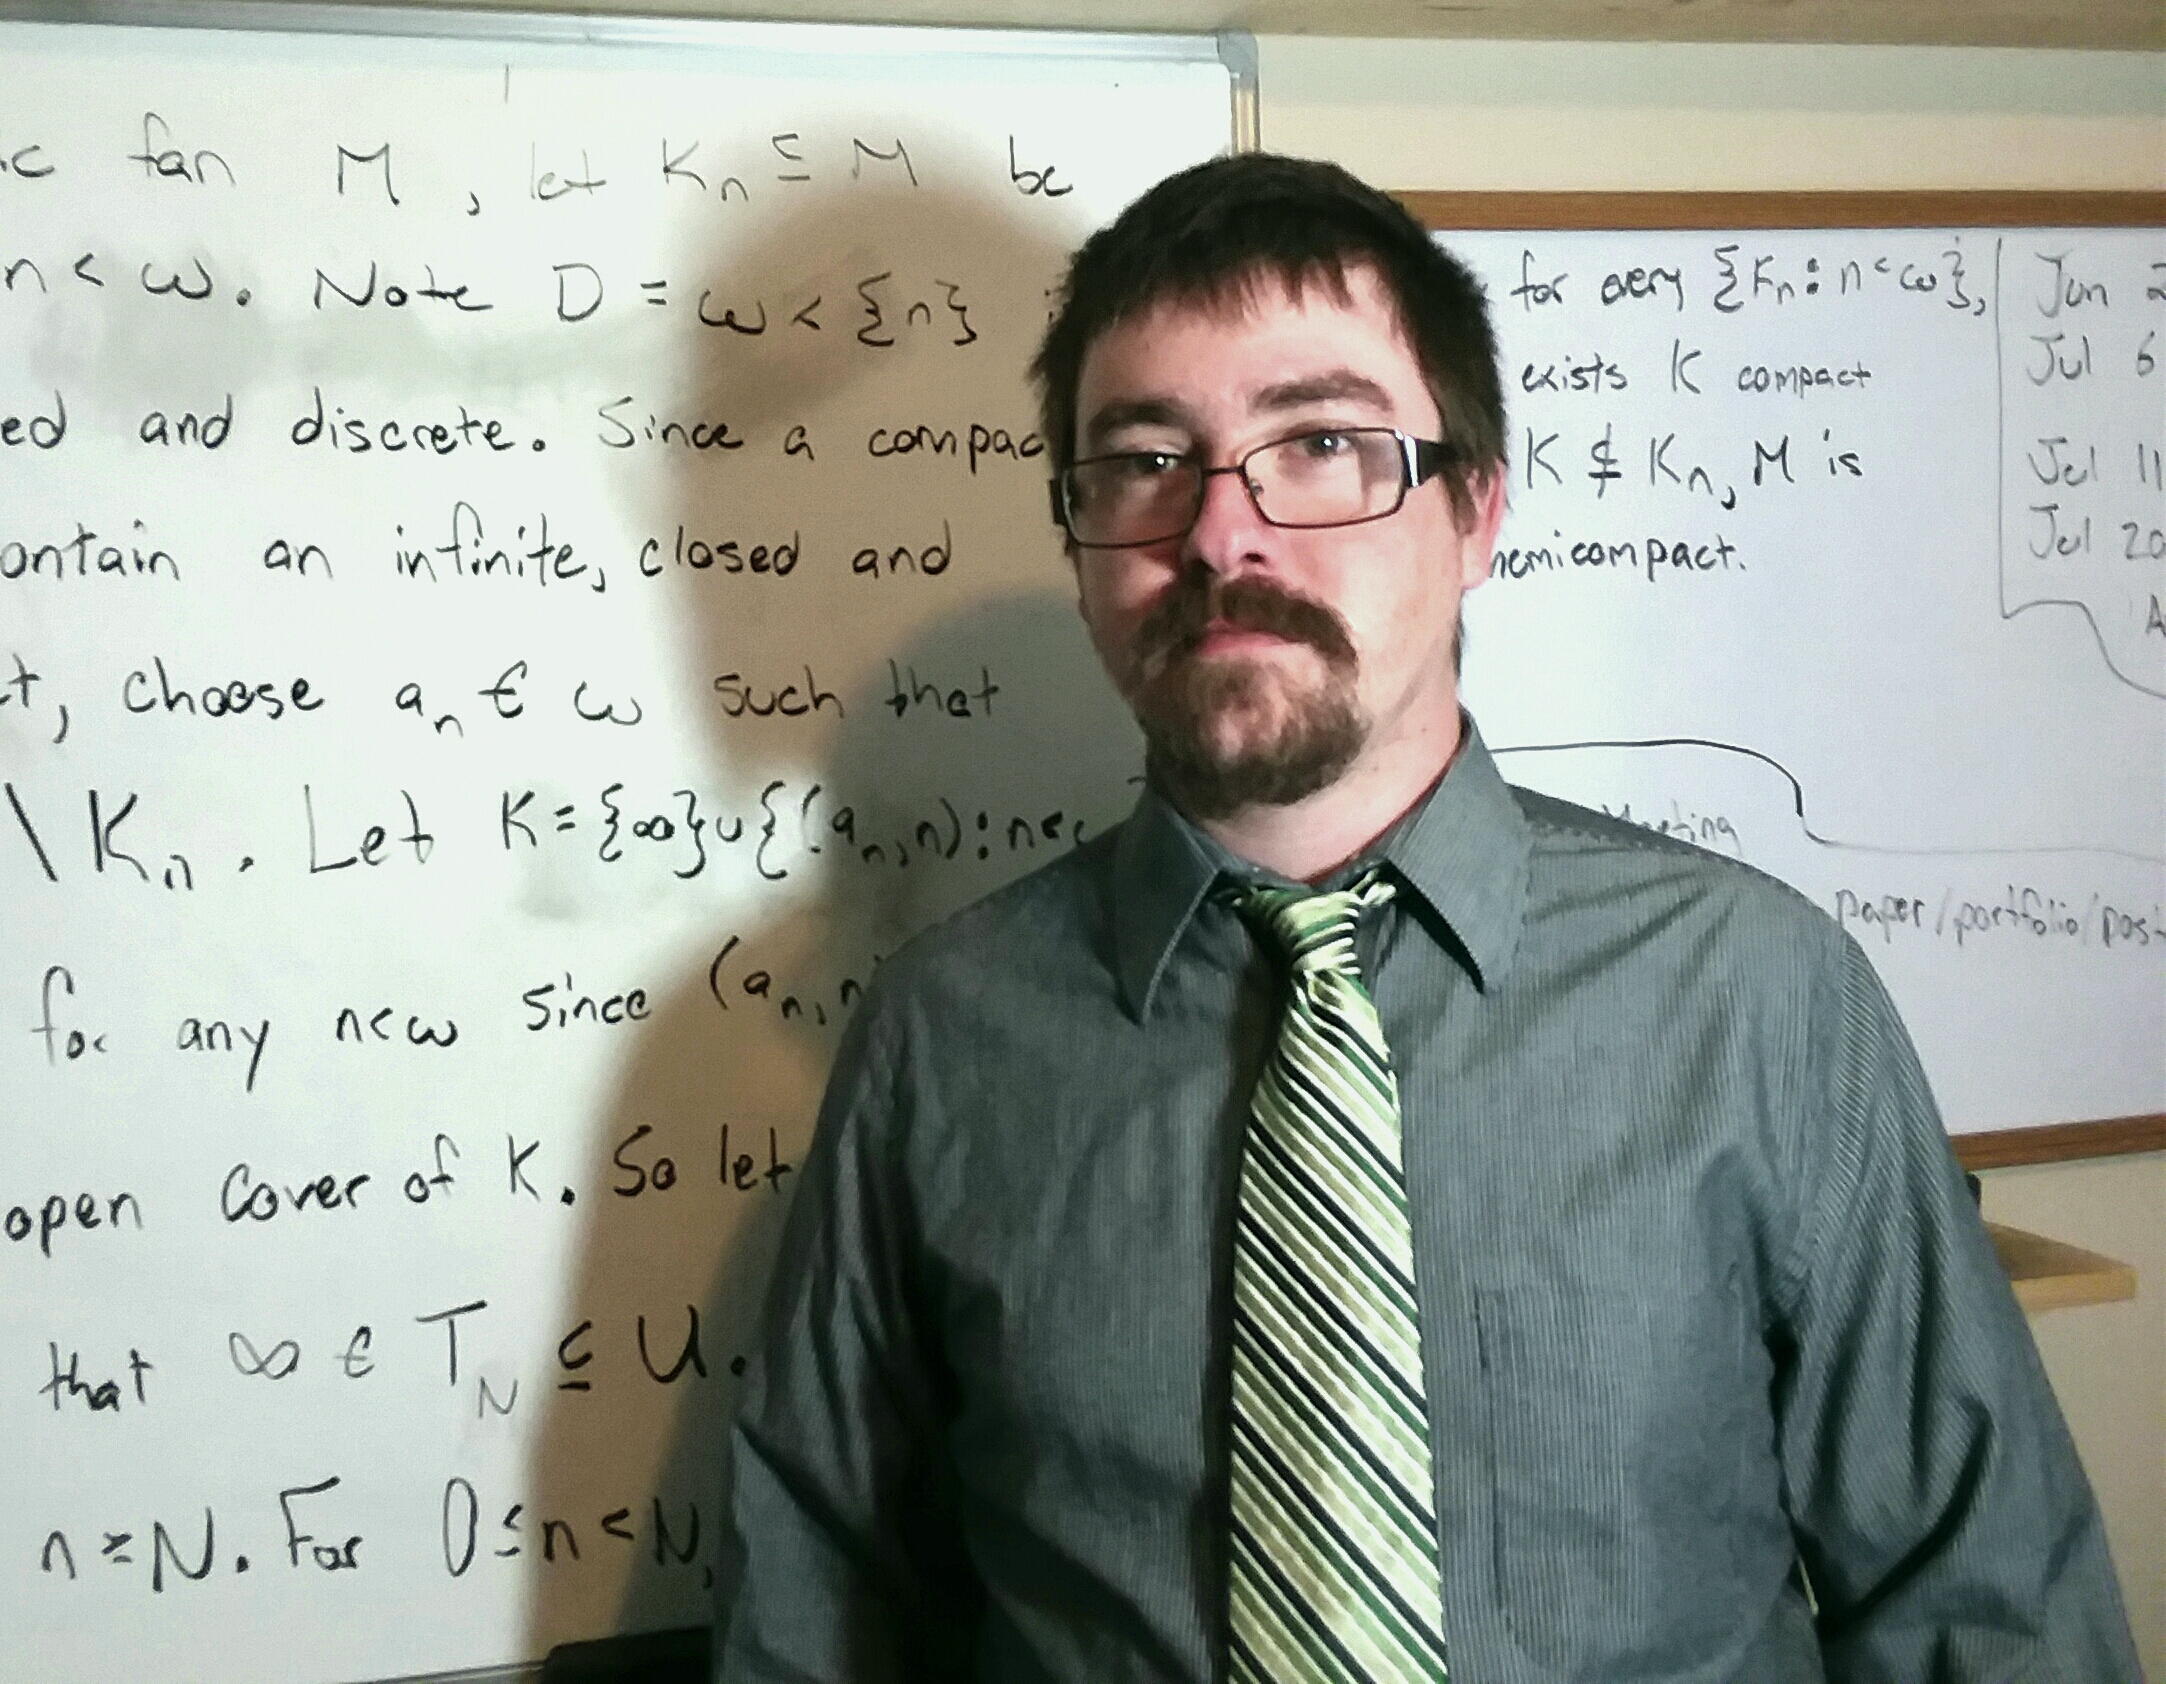 ic fan M, let Kn ⊆ M be
n < ω. Note D = ω × {n}
ed and discrete. Since a compac
ontain an infinite, closed and
t, choose an ∈ ω such that
\ Kn. Let K = {∞} ∪ {(an, n) : n<
for any n<ω since (an, n
open cover of K. So let
that ∞ ∈ TN ⊆ U.
n ≥ N. For 0 ≤ n < N,
for every {Kn : n < ω},
exists K compact
K ⊈ Kn, M is
hemicompact.
Jun 2
Jul 6
Jul 11
Jul 20
A
eeting
paper/portfolio/post